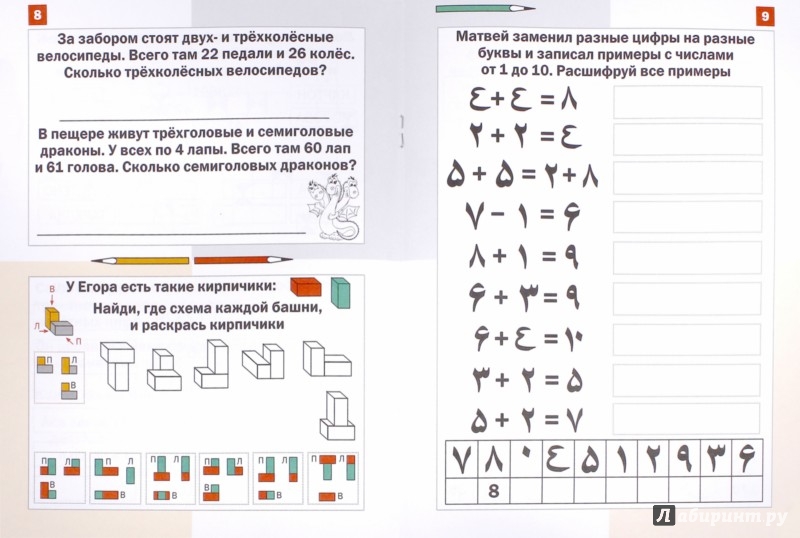 8
За забором стоят двух- и трёхколёсные
велосипеды. Всего там 22 педали и 26 колёс.
Сколько трёхколёсных велосипедов?
В пещере живут трёхголовые и семиголовые
драконы. У всех по 4 лапы. Всего там 60 лап
и 61 голова. Сколько семиголовых драконов?
У Егора есть такие кирпичики:
Найди, где схема каждой башни,
и раскрась кирпичики
В
Л
П
П Л
В
П Л
В
П Л
В
П Л
В
П Л
В
П Л
В
П Л
В
9
Матвей заменил разные цифры на разные
буквы и записал примеры с числами
от 1 до 10. Расшифруй все примеры
٤ + ٤ = ۸
۲ + ۲ = ٤
۵ + ۵ = ۲ + ۸
۷ − ۱ = ۶
۸ + ۱ = ۹
۶ + ۳ = ۹
۶ + ٤ = ۱۰
۳ + ۲ = ۵
۵ + ۲ = ۷
۷ ۸ ۰ ٤ ۵ ۱ ۲ ۹ ۳ ۶
8
Лабиринт.ру